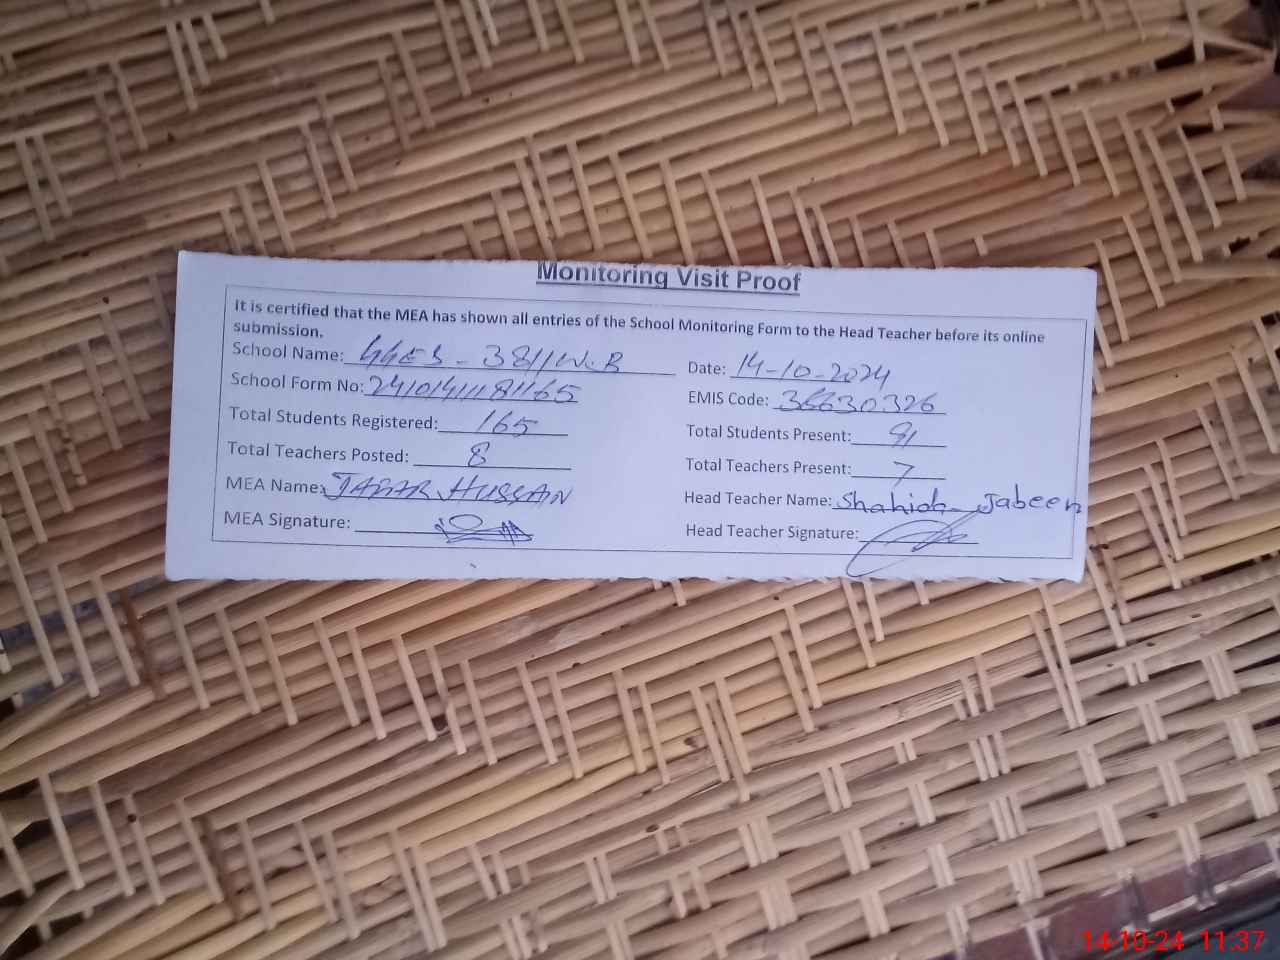 Monitoring Visit Proof
It is certified that the MEA has shown all entries of the School Monitoring Form to the Head Teacher before its online
submission.
School Name: GGES - 381/W.B Date: 14-10-2024
School Form No: 24101411181165 EMIS Code: 36630326
Total Students Registered: 165 Total Students Present: 91
Total Teachers Posted: 8 Total Teachers Present: 7
MEA Name: JABAR HUSSAIN Head Teacher Name: Shahida Jabeen
MEA Signature: Head Teacher Signature:
14-10-24 11:37